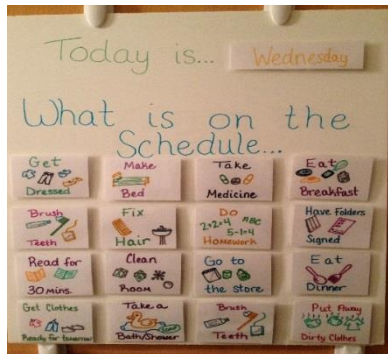 Today is... Wednesday
What is on the
Schedule...
Get
Dressed
Make
Bed
Take
Medicine
Eat
Breakfast
Brush
Teeth
Fix
Hair
Do
2+2=4 ABC
5-1=4
Homework
Have Folders
Signed
Read for
30 mins.
Clean
Room
Go to
the Store
Eat
Dinner
Get Clothes
Ready for tomorrow
Take a
Bath/Shower
Brush
Teeth
Put Away
Dirty Clothes